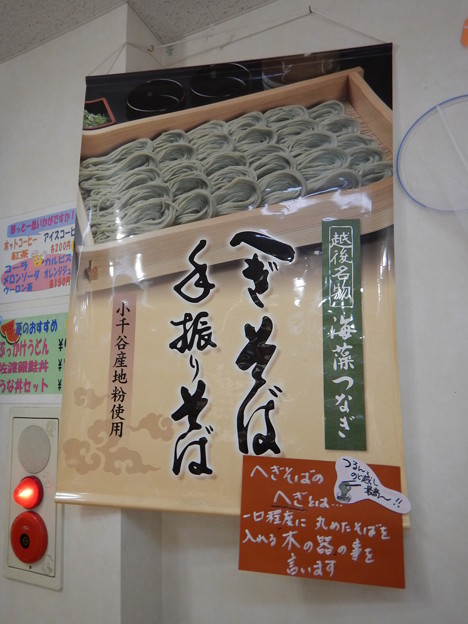 越後名物 海藻つなぎ
へぎそば
手振りそば
小千谷産地粉使用
へぎそばの
へぎとは…
一口程度に丸めたそばを
入れる木の器の事を
言います
つるん♪
のど越し
最高〜!!
ホットコーヒー アイスコーヒ
紅茶
コーラ カルピス
メロンソーダ オレンジジュ
ウーロン茶
夏のおすすめ
ぶっかけうどん ¥
佐渡銀鮭丼 ¥
うな丼セット ¥